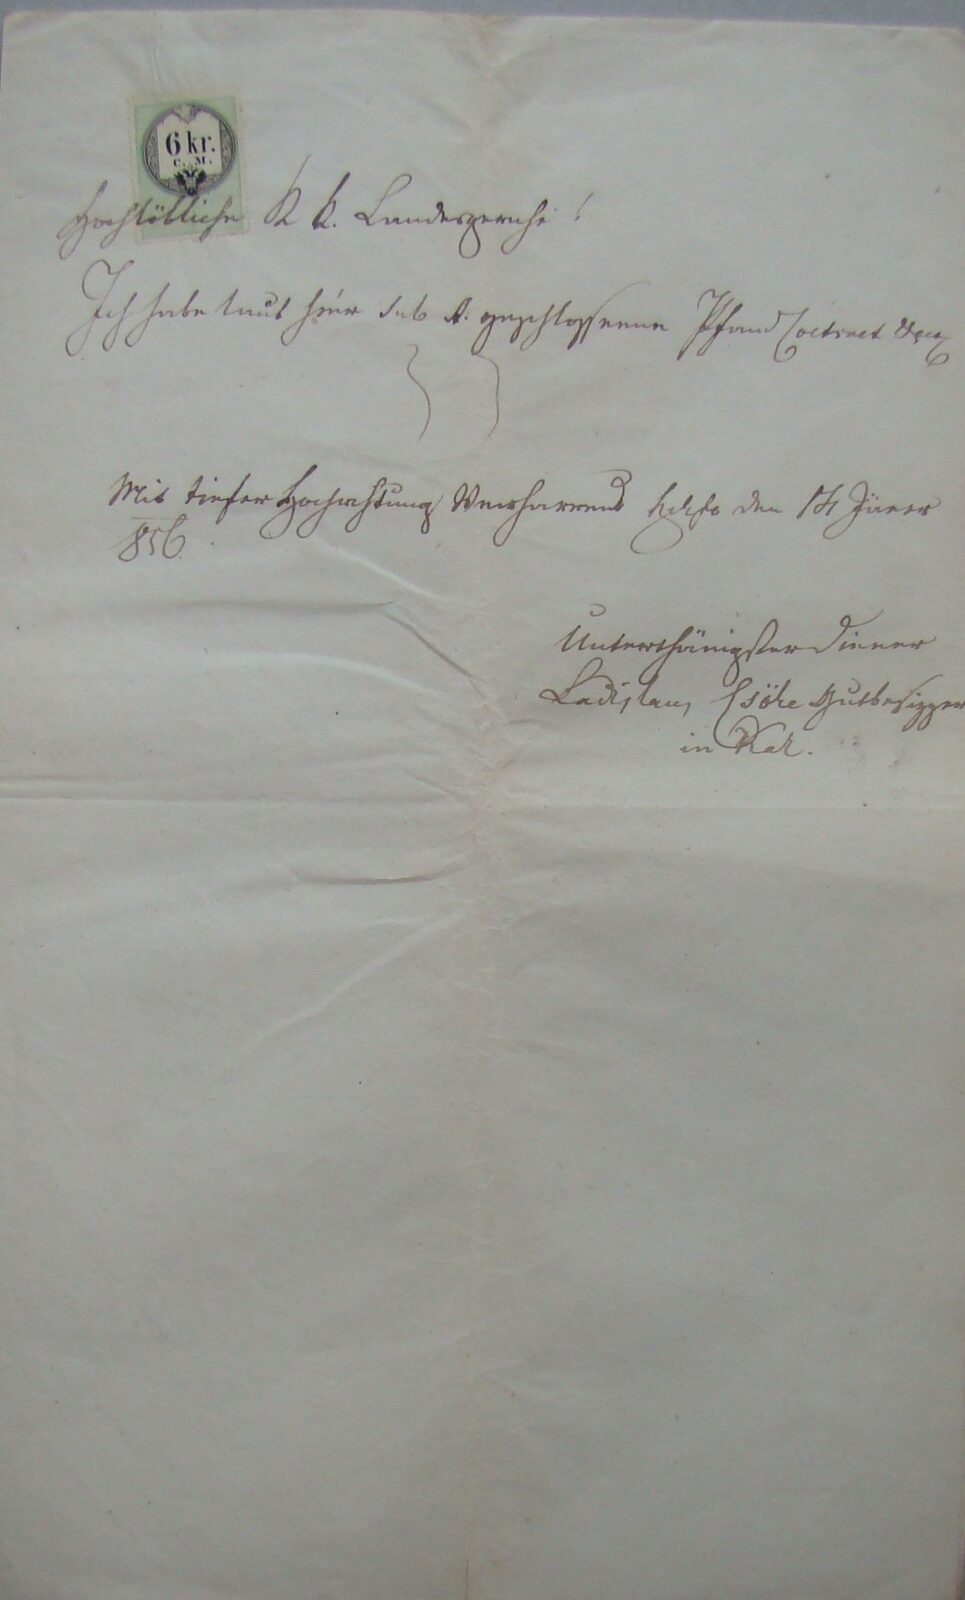 6 kr.
C. M.
Hochlöbliche K k. Landesgericht!
Ich habe laut hier sub A. geschlossenen Pfand Contract
Mit tiefer Hochachtung Verharrend den 14 Jäner
856.
Unterthänigster Diener
Ladislaus Csöke Gutbesizzer
in Kál.